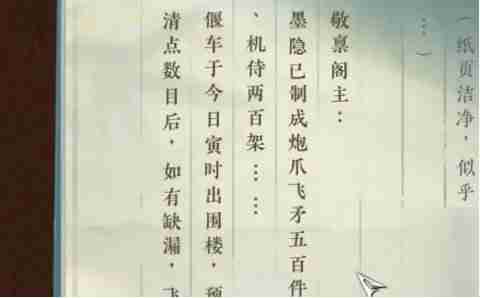 （纸页洁净，似乎
…）
敬禀阁主：
墨隐已制成炮爪飞矛五百件
、机侍两百架……
偃车于今日寅时出围楼，预
清点数目后，如有缺漏，飞